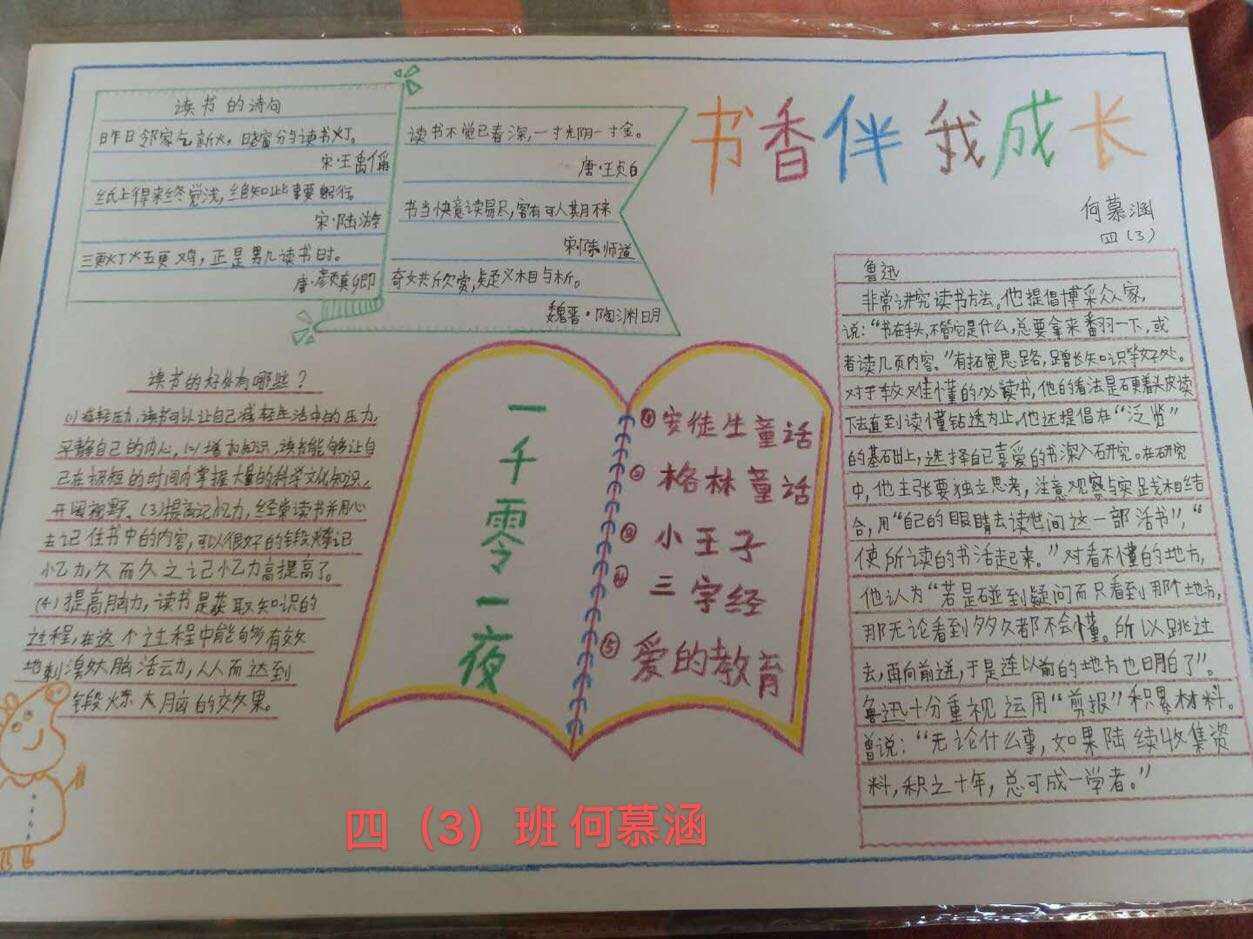 书香伴我成长
何慕涵
四(3)
读书的诗句
昨日邻家乞新火，晓窗分与读书灯。
宋·王禹偁
纸上得来终觉浅，绝知此事要躬行。
宋·陆游
三更灯火五更鸡，正是男儿读书时。
唐·颜真卿
读书不觉已春深，一寸光阴一寸金。
唐·王贞白
书当快意读易尽，客有可人期不来
宋·陈师道
奇文共欣赏，疑义相与析。
魏晋·陶渊明
读书的好处有哪些？
(1)减轻压力，读书可以让自己减轻生活中的压力，
平静自己的内心，(2)增加知识，读书能够让自
己在极短的时间内掌握大量的科学文化知识，
开阔视野、(3)提高记忆力，经常读书并用心
去记住书中的内容，可以很好的锻炼记
忆力，久而久之记忆力高提高了。
(4)提高脑力，读书是获取知识的
过程，在这个过程中能够有效
地刺激大脑活动，从而达到
锻炼大脑的效果。
一千零一夜
①安徒生童话
②格林童话
③小王子
④三字经
⑤爱的教育
鲁迅
非常讲究读书方法。他提倡博采众家，
说：“书在手头，不管它是什么，总要拿来翻一下，或
者读几页内容。”有拓宽思路，增长知识等好处。
对于较难懂的必读书，他的看法是硬着头皮读
下去直到读懂钻透为止。他还提倡在“泛览”
的基础上，选择自己喜爱的书深入研究。在研究
中，他主张要独立思考，注意观察与实践相结
合，用“自己的眼睛去读世间这一部活书”，“
使所读的书活起来。”对看不懂的地方，
他认为“若是碰到疑问而只看到那个地方，
那无论看到多久都不会懂。所以跳过
去，再向前进，于是连以前的地方也明白了”。
鲁迅十分重视运用“剪报”积累材料。
曾说：“无论什么事，如果陆续收集资
料，积之十年，总可成一学者。”
四（3）班 何慕涵